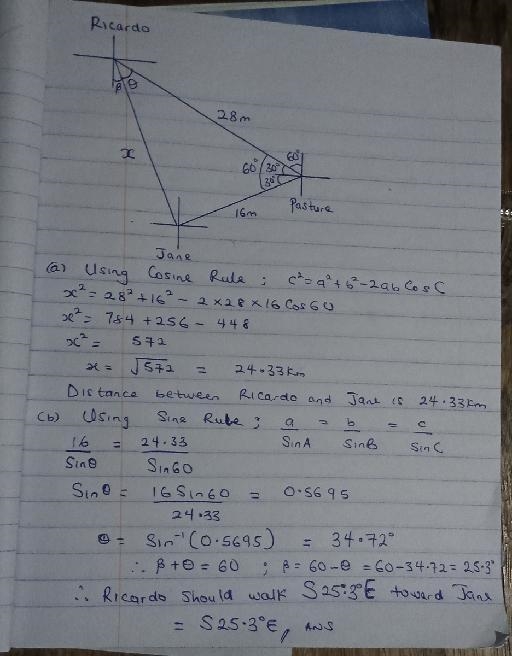 Ricardo
β θ
28m
x
60° 30° 60°
30°
16m
Pasture
Jane
(a) Using Cosine Rule ; c² = a² + b² - 2ab Cos C
x² = 28² + 16² - 2 x 28 x 16 Cos 60
x² = 784 + 256 - 448
x² = 572
x = √572 = 24.33km
Distance between Ricardo and Jane is 24.33km
(b) Using Sine Rule ; a/SinA = b/SinB = c/SinC
16/Sinθ = 24.33/Sin60
Sinθ = 16 Sin60/24.33 = 0.5695
θ = Sin⁻¹(0.5695) = 34.72°
∴ β + θ = 60 ; β = 60 - θ = 60 - 34.72 = 25.3°
∴ Ricardo should walk S25.3°E toward Jane
= S25.3°E, ANS